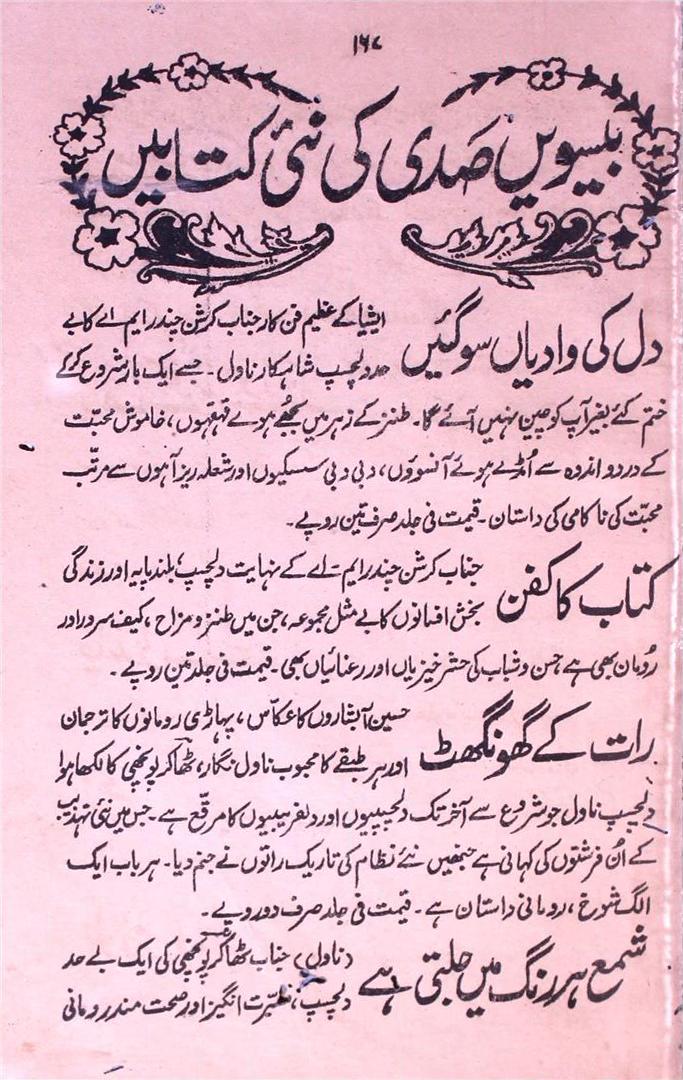 ۱۶۸
بیسویں صدی کی نئی کتابیں
دل کی وادیاں سوگئیں
ایشیا کے عظیم فن کار جناب کرشن چندر ایم اے کا بے
حد دلچسپ شاہکار ناول۔ جسے ایک بار شروع کرکے
ختم کئے بغیر آپ کو چین نہیں آئے گا۔ طنز کے زہر میں بجھے ہوئے قہقہوں، خاموش محبّت
کے درد و اندوہ سے اُمڈے ہوئے آنسوؤں، دبی دبی سسکیوں اور شعلہ ریز آہوں سے مرتّب
محبّت کی ناکامی کی داستان۔ قیمت فی جلد صرف تین روپے۔
کتاب کا کفن
جناب کرشن چندر ایم۔اے کے نہایت دلچسپ، بلند پایہ اور زندگی
بخش افسانوں کا بے مثل مجموعہ، جن میں طنز و مزاح، کیف سرور اور
رُومان بھی ہے حسن و شباب کی حشر خیزیاں اور رعنائیاں بھی۔ قیمت فی جلد تین روپے۔
رات کے گھونگھٹ
حسین آبشاروں کا عکاس، پہاڑی رومانوں کا ترجمان
اور ہر طبقے کا محبوب ناول نگار، ٹھاکر پونچھی کا لکھا ہوا
دلچسپ ناول جو شروع سے آخر تک دلچسپیوں اور دلفریبیوں کا مرقّع ہے۔ جس میں نئی تہذیب
کے اُن فرشتوں کی کہانی ہے جنھیں نئے نظام کی تاریک راتوں نے جنم دیا۔ ہر باب ایک
الگ شوخ، رومانی داستان ہے۔ قیمت فی جلد صرف دو روپے۔
شمع ہر رنگ میں جلتی ہے
(ناول) جناب ٹھاکر پونچھی کی ایک بے حد
دلچسپ، انگیز اور صحت مند رومانی